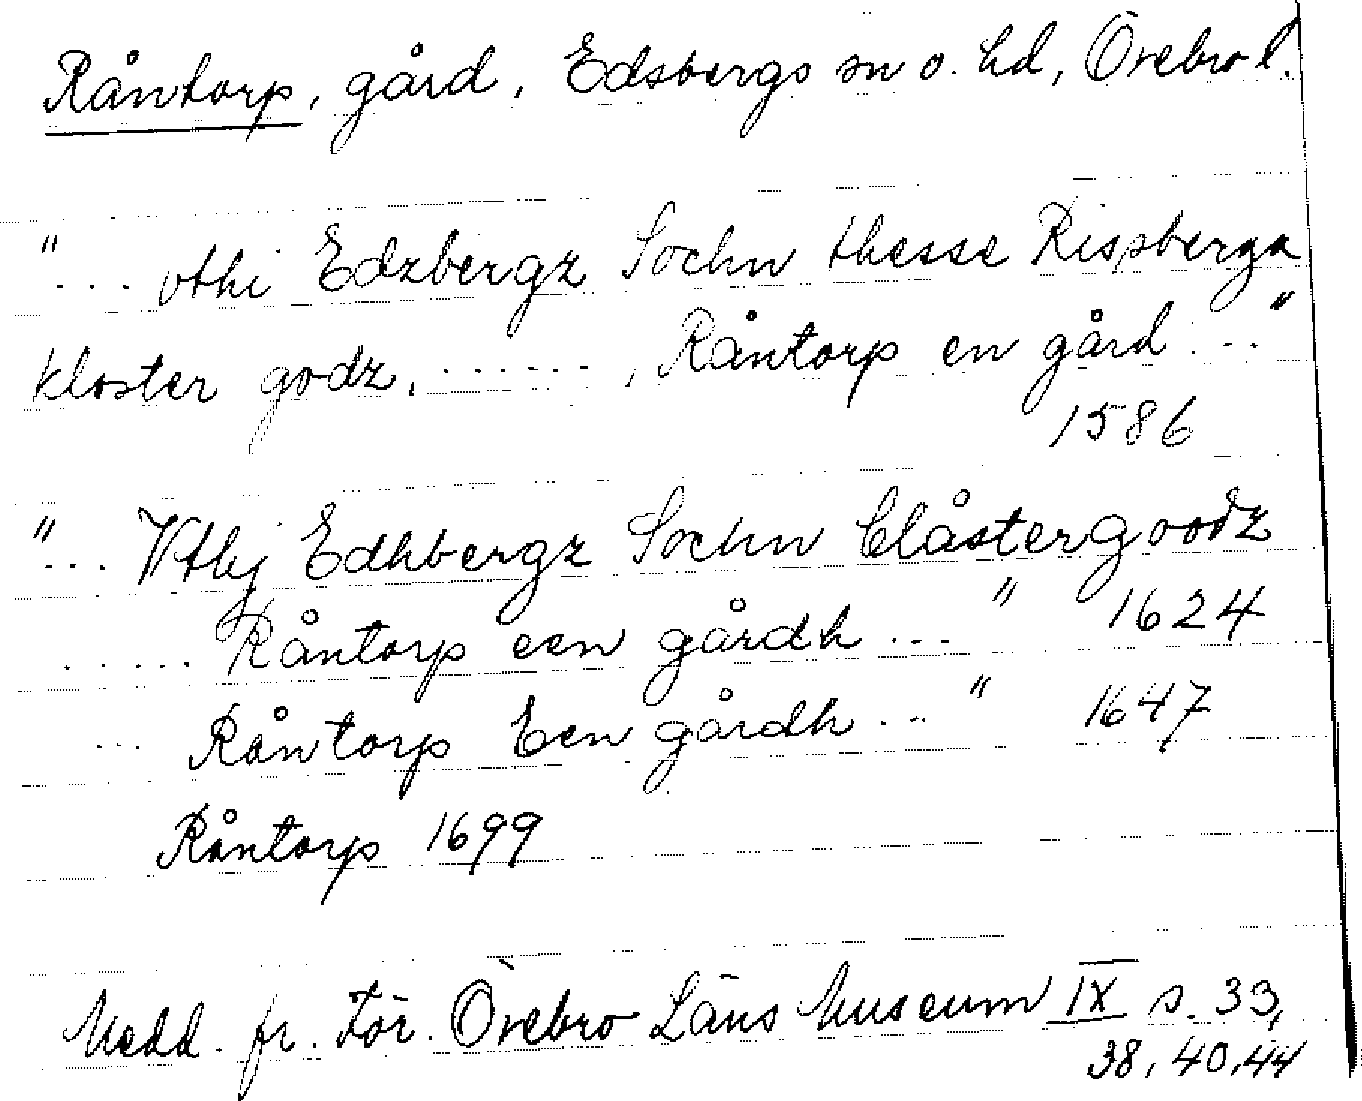 Råntorp, gård, Edsbergs sn o. hd, Örebro l.
"... vthi Edzbergz Sochn thesse Rissberga
kloster godz, ......, Råntorp en gård ..."
1586
"... Vthj Edhbergz Sochn Clåstergoodz
..... Råntorp een gårdh ..." 1624
... Råntorp Een gårdh ..." 1647
Råntorp 1699
Medd. fr. För. Örebro Läns Museum IX s. 33,
38, 40, 44